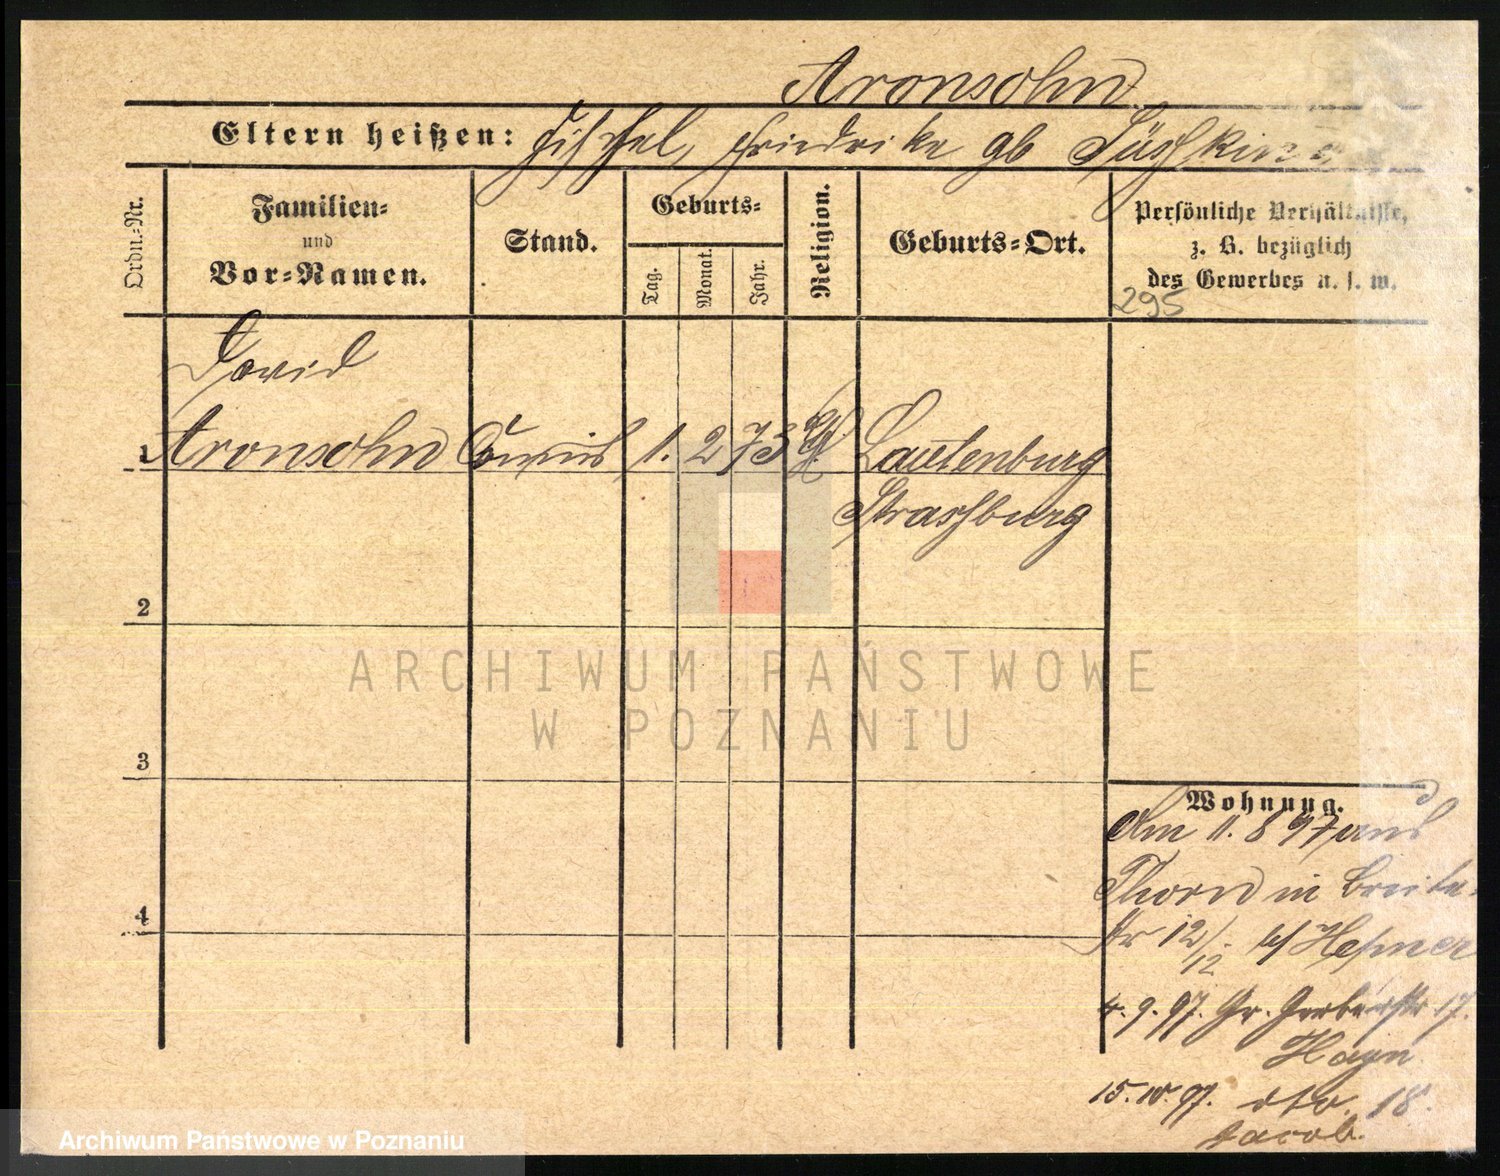 Aronsohn
Eltern heißen: Fischel, Friedrike gb
Ordn.-Nr.
Familien- und Vor-Namen.
Stand.
Geburts-
Tag.
Monat.
Jahr.
Religion.
Geburts-Ort.
Persönliche Verhältnisse,
z. B. bezüglich
des Gewerbes u. s. w.
295
David
1 Aronsohn 1. 2 73 Lautenburg
Strassburg
2
3
4
Wohnung.
Am 11. 8 97 aus
Thorn in Breite-
str 12/12 b/
4. 9. 97. Gr. Gerberstr 17.
Hayn
15. 10. 97. dto. 18.
Jacob.
ARCHIWUM PAŃSTWOWE
W POZNANIU
Archiwum Państwowe w Poznaniu